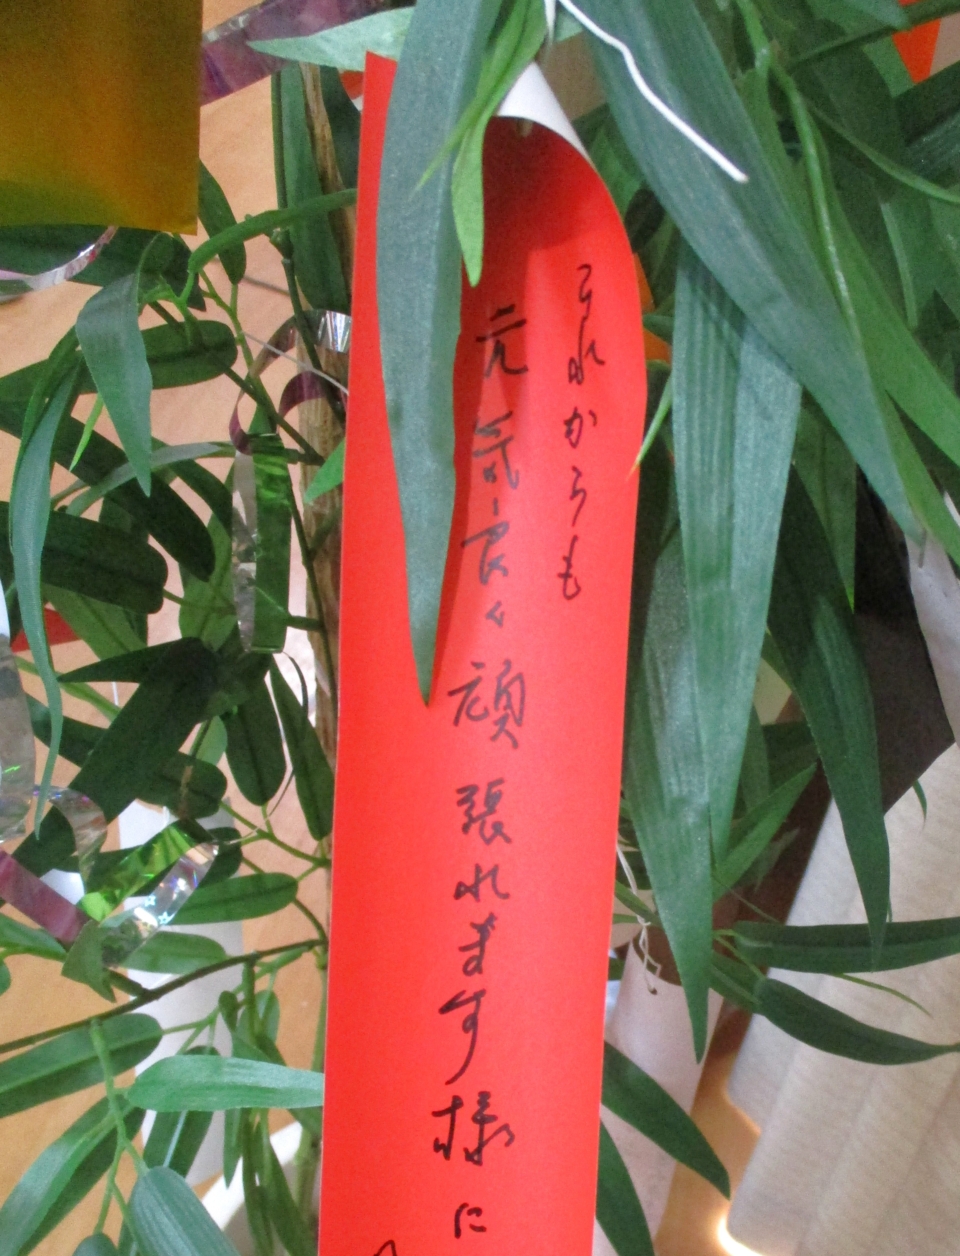 これからも
元気良く頑張れます様に